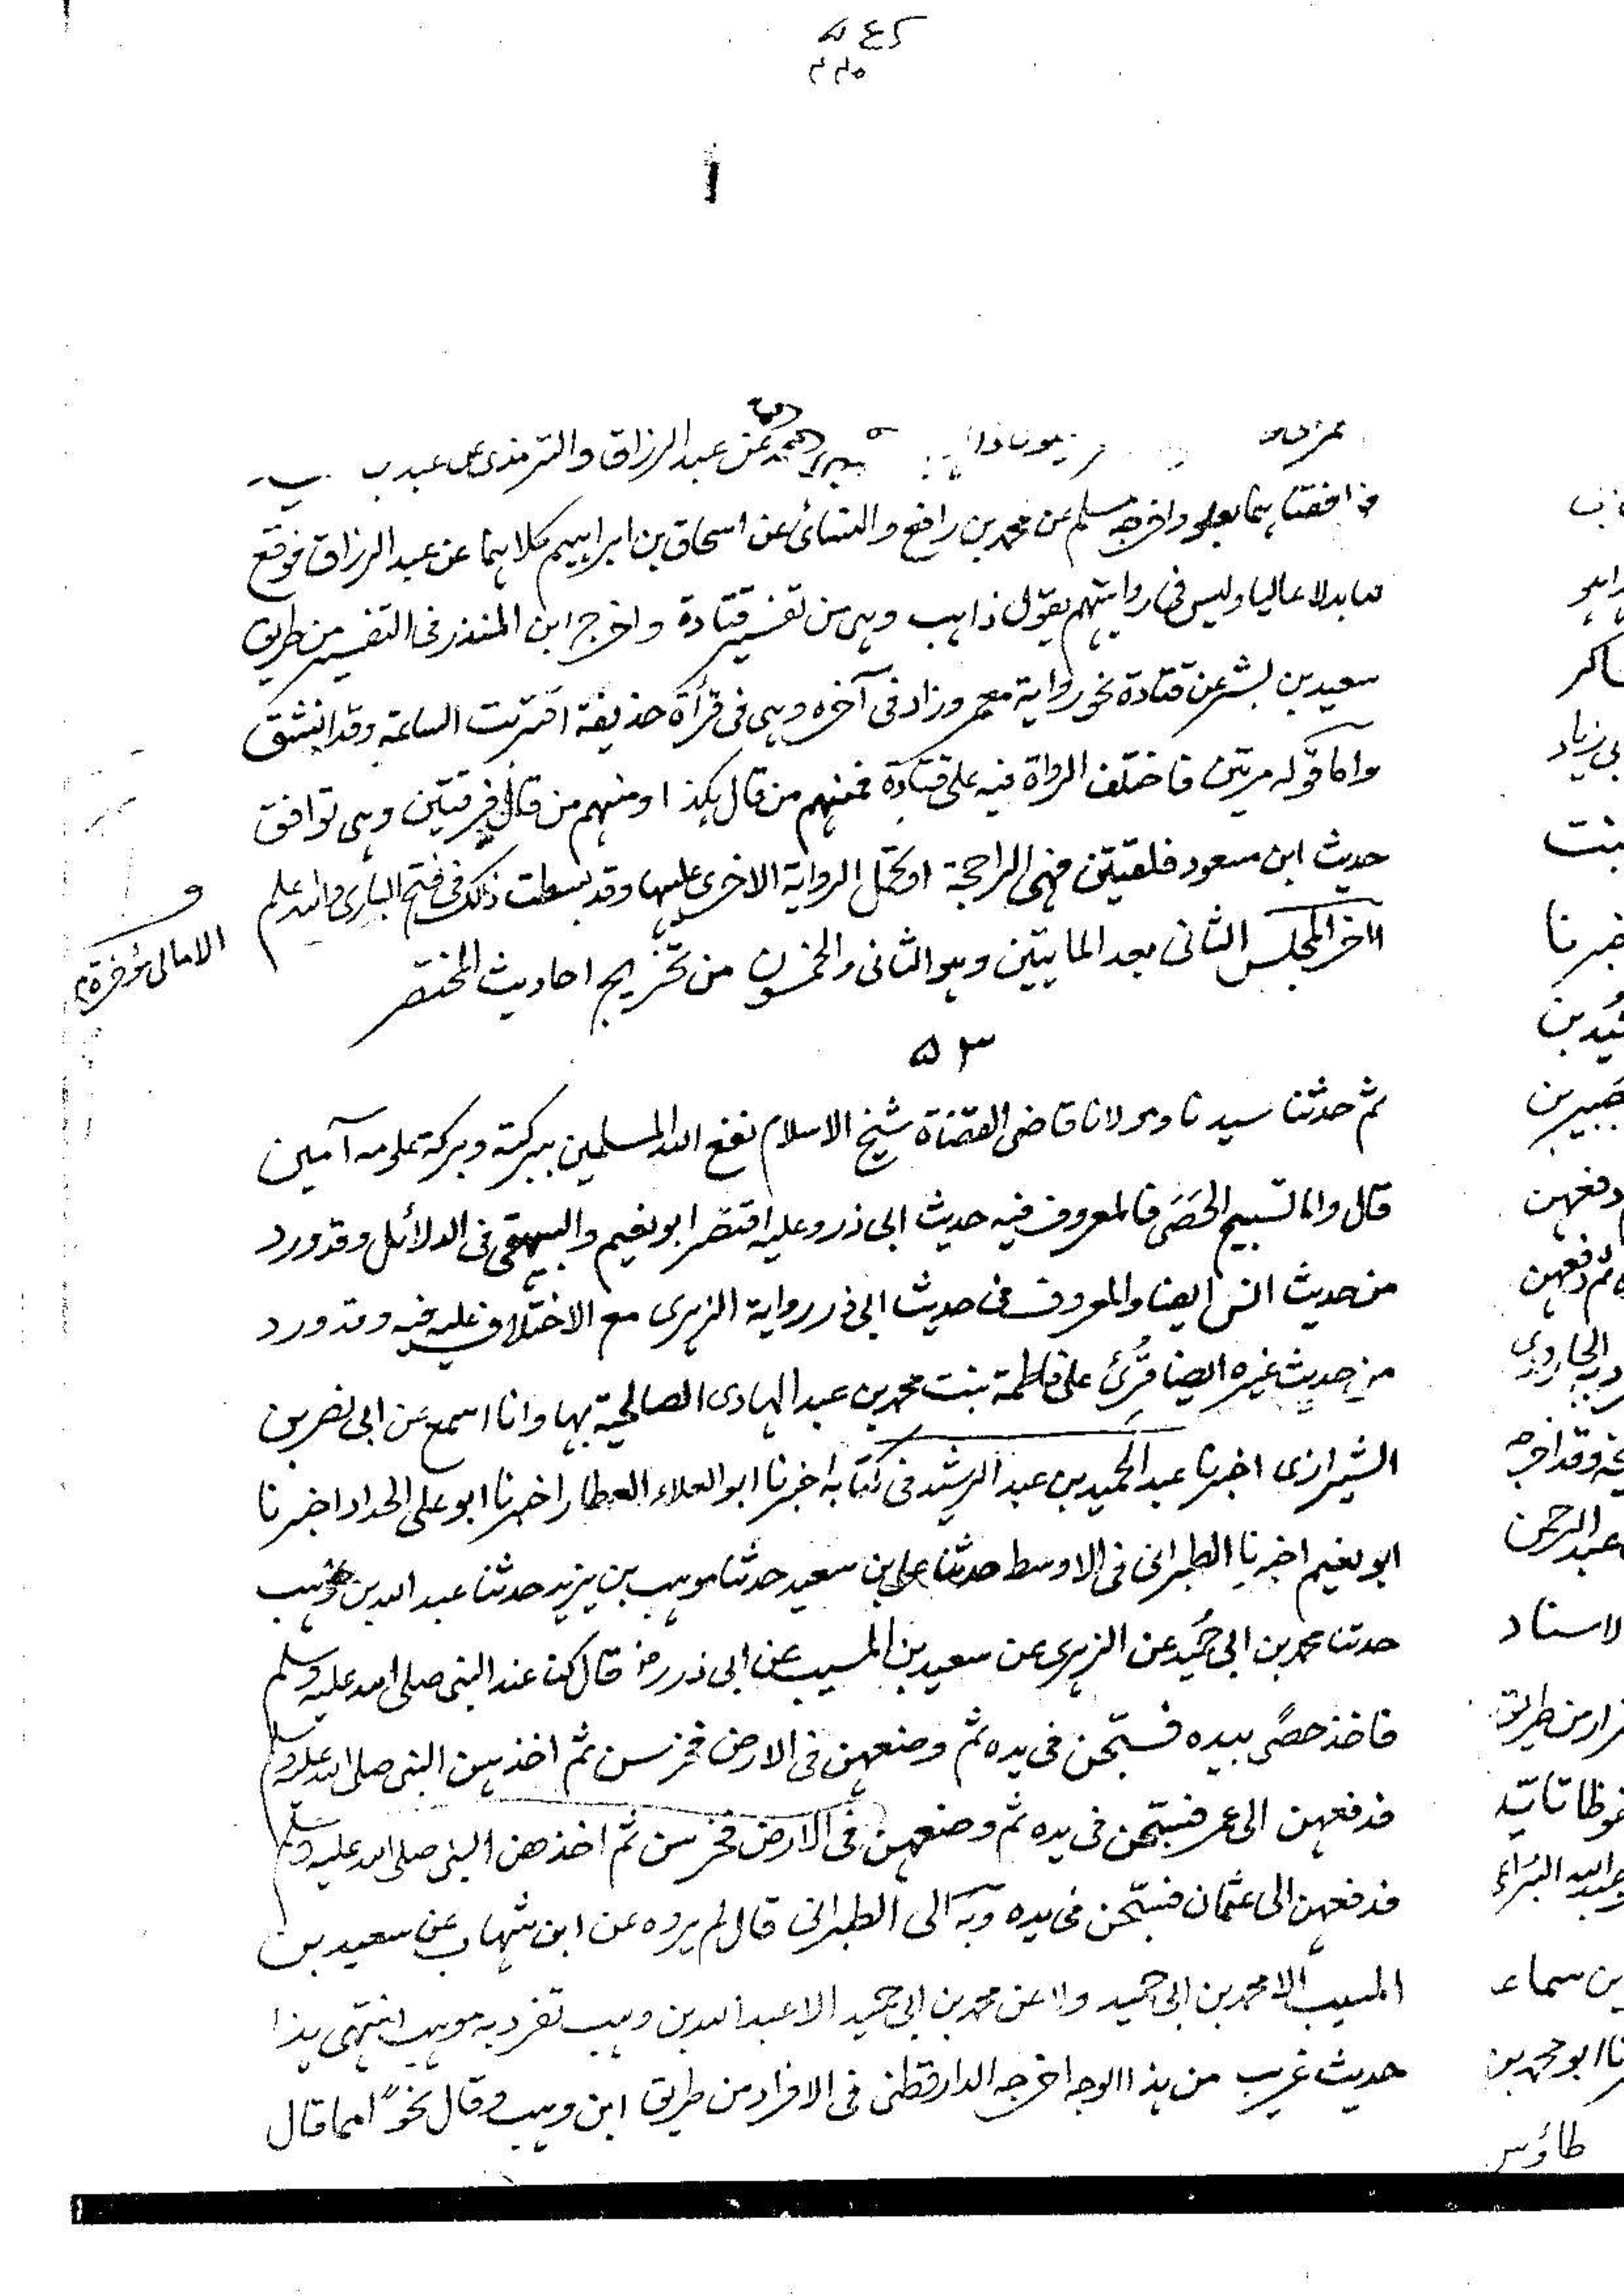 عن عبد الرزاق والترمذى عن عبد ب
فوافقناهما بعلو واخرجه مسلم عن محمد بن رافع والنسائى عن اسحاق بن ابراهيم كلاهما عن عبد الرزاق فوقع
لنا بدلا عاليا وليس فى روايتهم يقول ذاهب وهى من تفسير قتادة واخرج ابن المنذر فى التفسير من طريق
سعيد بن بشر عن قتادة نحو رواية معمر وزاد فى آخره وهى فى قرأة حذيفة اقتربت الساعة وقد انشق
واما قوله مرتين فاختلف الرواة فيه على قتادة فمنهم من قال هكذا ومنهم من قال فرقتين وهى توافق
حديث ابن مسعود فلقتين فهى الراجحة او تحمل الرواية الاخرى عليها وقد بسطت ذلك فى فتح البارى والله اعلم
آخر المجلس الثانى بعد المايتين وهو الثانى والخمسون من تخريج احاديث المختصر
الامالى مؤخرة
٥٣
ثم حدثنا سيدنا ومولانا قاضى القضاة شيخ الاسلام نفع الله المسلمين ببركته وبركة علومه آمين
قال واما تسبيح الحصَى فالمعروف فيه حديث ابى ذر وعليه اقتصر ابو نعيم والبيهقى فى الدلائل وقد ورد
من حديث انس ايضا والمعروف فى حديث ابى ذر رواية الزهرى مع الاختلاف عليه فيه وقد ورد
من حديث غيره ايضا قُرئ على فاطمة بنت محمد بن عبد الهادى الصالحية بها وانا اسمع عن ابى نصر بن
الشيرازى اخبرنا عبد الحميد بن عبد الرشيد فى كتابه اخبرنا ابو العلاء العطار اخبرنا ابو على الحداد اخبرنا
ابو نعيم اخبرنا الطبرانى فى الاوسط حدثنا على بن سعيد حدثنا موهب بن يزيد حدثنا عبد الله بن وهب
حدثنا محمد بن ابى حُميد عن الزهرى عن سعيد بن المسيب عن ابى ذر رض قال كنت عند النبى صلى الله عليه وسلم
فاخذ حصًى بيده فسبّحن فى يده ثم وضعهن فى الارض فخرسن ثم اخذهن النبى صلى الله عليه وسلم
فدفعهن الى عمر فسبّحن فى يده ثم وضعهن فى الارض فخرسن ثم اخذهن النبى صلى الله عليه وسلم
فدفعهن الى عثمان فسبّحن فى يده وبه الى الطبرانى قال لم يروه عن ابن شهاب عن سعيد بن
المسيب الا محمد بن ابى حميد ولا عن محمد بن ابى حميد الا عبد الله بن وهب تفرد به موهب انتهى هذا
حديث غريب من هذا الوجه اخرجه الدارقطنى فى الافراد من طريق ابن وهب وقال نحوًا مما قال
شاكر
بى زياد
بنت
خبرنا
دفعهن
ثم دفعهن
وقد اخرجه
عبد الرحمن
الاسناد
من طريق
بن سماء
نا ابو محمد بن
طاؤس